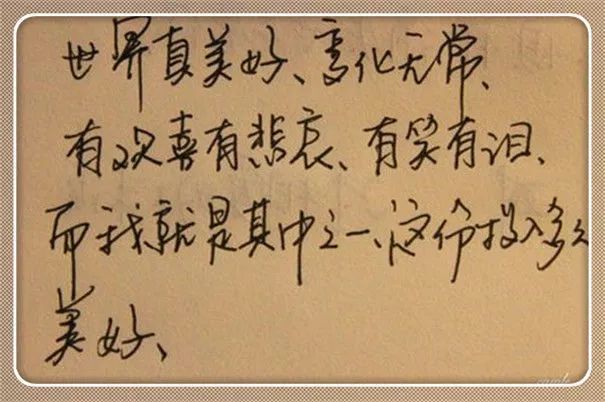 世界真美好、变化无常、
有欢喜有悲哀、有笑有泪、
而我就是其中之一、这份投入多么
美好、